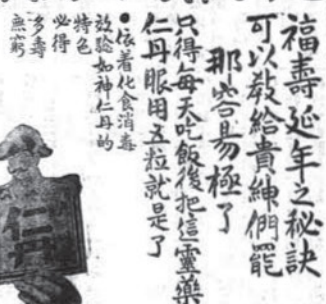 福壽延年之秘訣
可以敎給貴紳們罷
那容易極了
只得每天吃飯後把這靈藥
仁丹眼用五粒就是了
●依着化食消毒
效驗如神仁丹的
特色
必得
多壽
無窮
仁丹